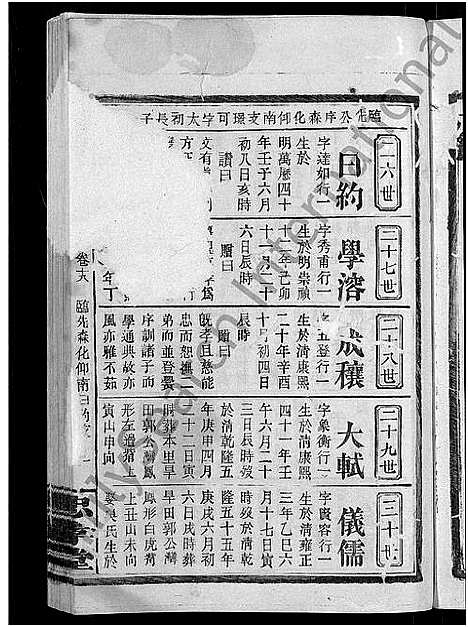 臨化公序森化仰南支環可字太初長子
二十六世
日約
字達如行一
生於
明萬曆四十
年壬子六月
初八日亥時
讚曰
文有
二十七世
學溶
字秀甫行一
生於明崇禎
十二年己卯
十一月二十
六日辰時
贈曰
二十八世
成穰
字五登行一
生於清康熙
二十年辛酉
十月初四日
辰時
贈曰
既孝且慈能
忠而恕撫二
弟而並登黌
序訓諸子而
學通典故亦
風亦雅不茹
二十九世
大軾
字象衡行一
生於清康熙
四十一年壬
午六月二十
三日辰時歿
於清乾隆五
年庚申四月
十二日寅
時葬本里旱
田郭公灣鳳
形左邊穴上
寅山申向
三十世
儀儒
字賢容行一
生於清雍正
三年乙巳六
月十七日寅
時歿於清乾
隆五十五年
庚戌六月初
六日戌時葬
旱田郭公灣
鳳形白虎嘴
上丑山未向
娶吳氏生於
卷十八
臨先森化仰南日約
忠孝堂